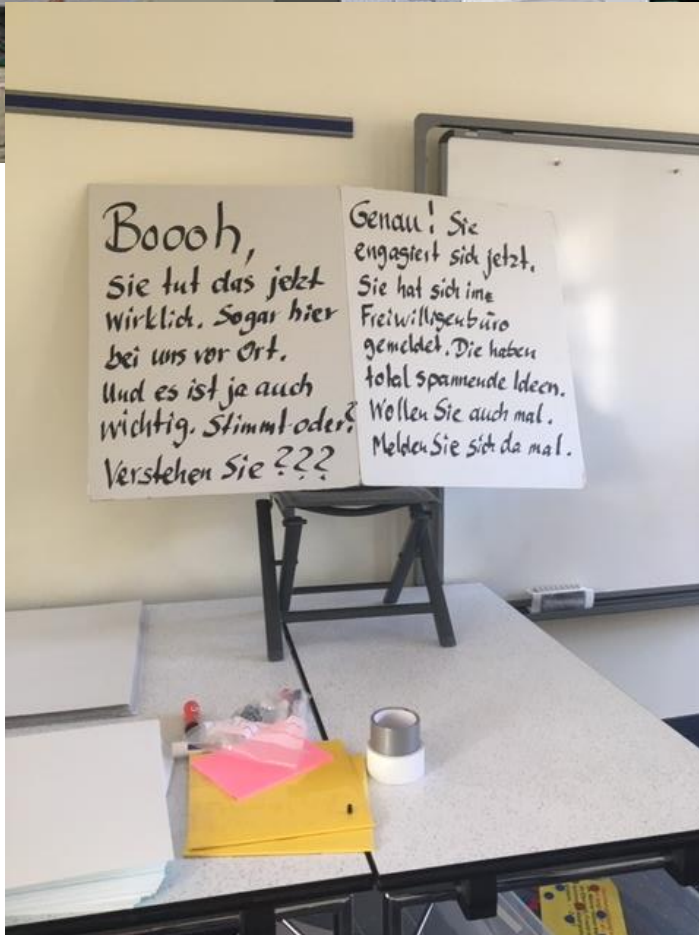 Boooh,
Sie tut das jetzt
wirklich. Sogar hier
bei uns vor Ort.
Und es ist ja auch
wichtig. Stimmt oder?
Verstehen Sie ???
Genau! Sie
engagiert sich jetzt.
Sie hat sich im
Freiwilligenbüro
gemeldet. Die haben
total spannende Ideen.
Wollen Sie auch mal.
Melden Sie sich da mal.